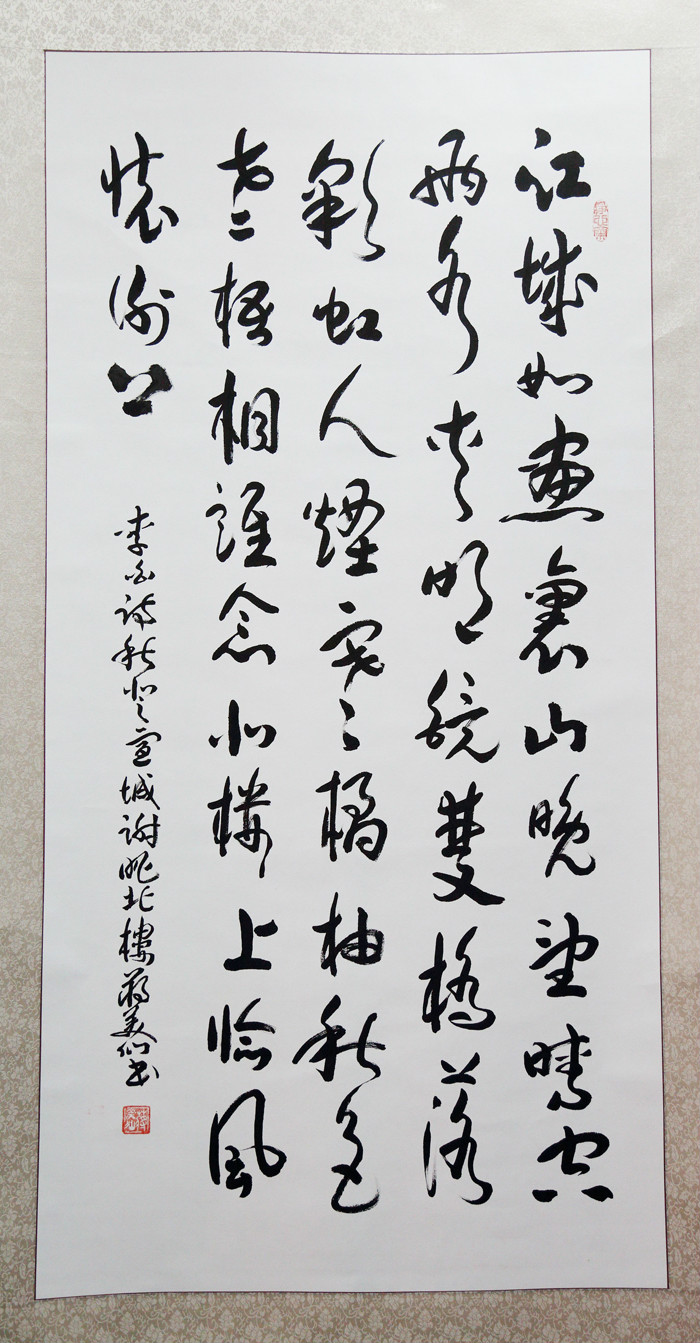 江城如畫裏山晚望晴空
兩水夾明鏡雙橋落
彩虹人煙寒橘柚秋色
老梧桐誰念北樓上臨風
懷謝公
李白詩秋登宣城謝朓北樓蔣美仙書